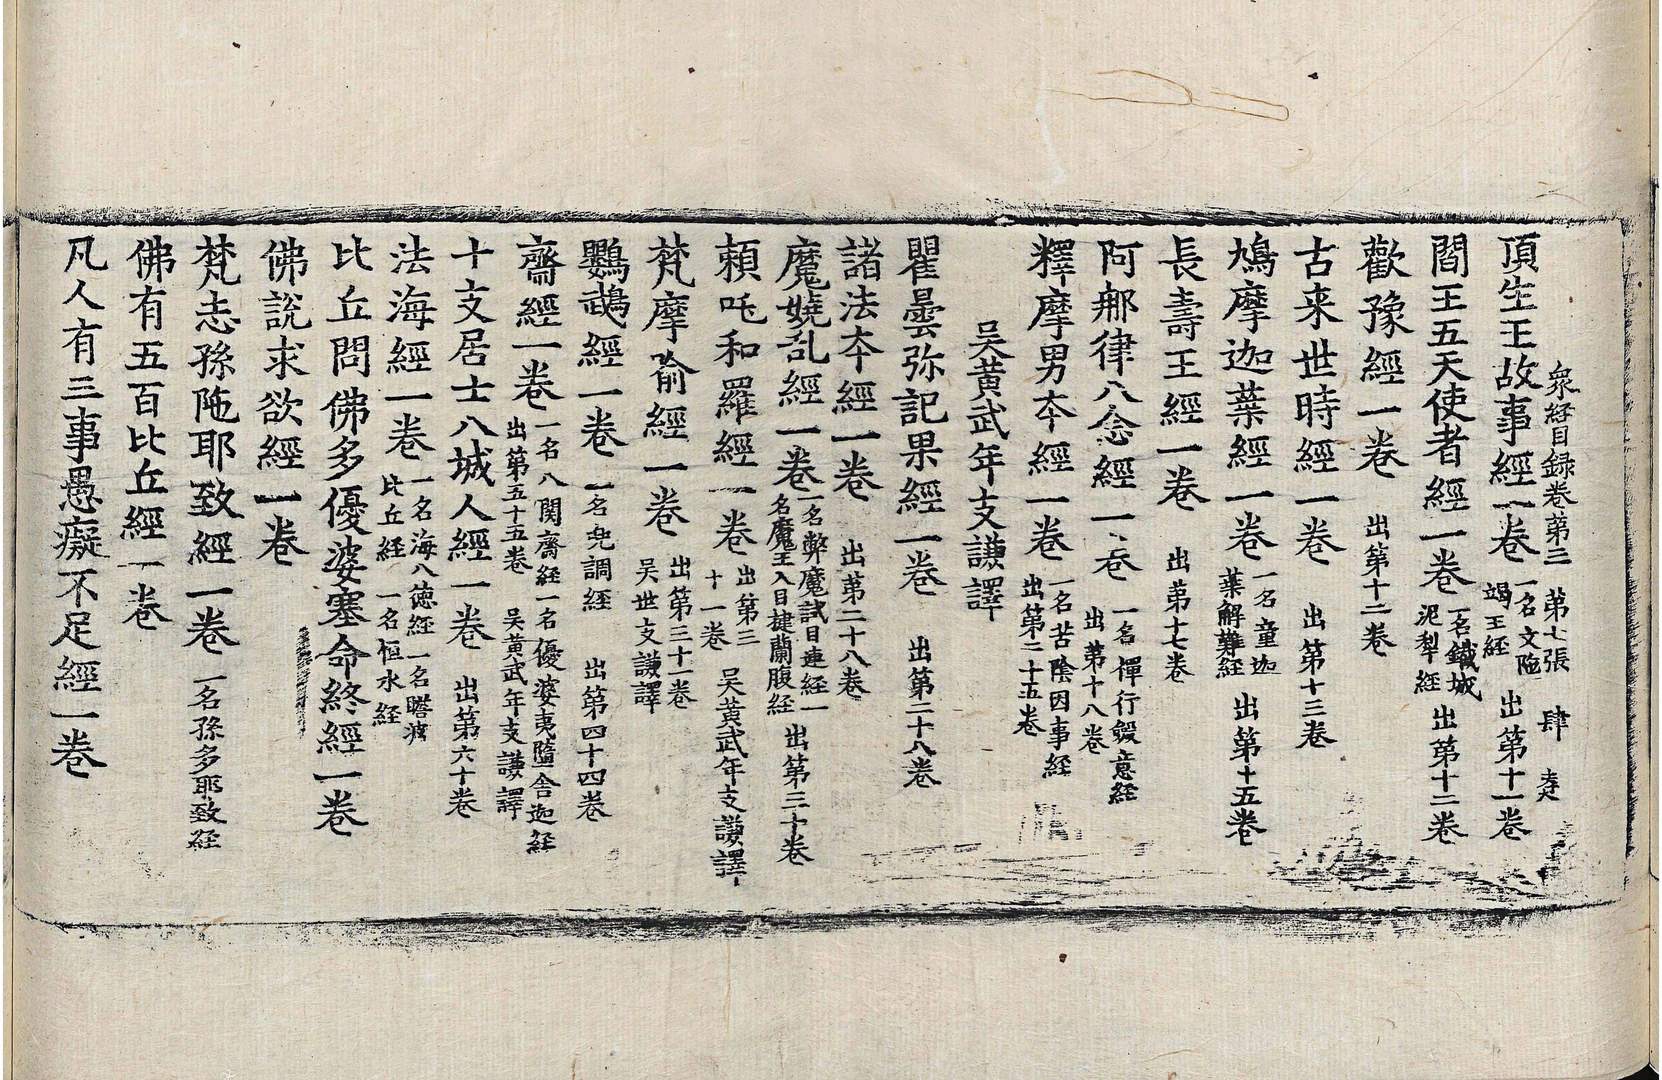 衆経目録卷第三 第七張 肆
頂生王故事經一卷 一名文陁竭王経 出第十一卷
閻王五天使者經一卷 一名鐵城泥犁経 出第十二卷
歡豫經一卷 出第十二卷
古来世時經一卷 出第十三卷
鳩摩迦葉經一卷 一名童迦葉解難経 出第十五卷
長壽王經一卷 出第十七卷
阿那律八念經一卷 一名禪行斂意経 出第十八卷
釋摩男夲經一卷 一名苦陰因事経 出第二十五卷
吴黄武年支謙譯
瞿曇弥記果經一卷 出第二十八卷
諸法夲經一卷 出第二十八卷
魔嬈乱經一卷 一名弊魔試目連経一名魔王入目揵蘭腹経 出第三十卷
頼吒和羅經一卷 出第三十一卷 吴黄武年支謙譯
梵摩喻經一卷 出第三十一卷吴世支謙譯
鸚鵡經一卷 一名兜調経 出第四十四卷
齋經一卷 一名八関齋経一名優婆夷墮舍迦経出第五十五卷 吴黄武年支謙譯
十支居士八城人經一卷 出第六十卷
法海經一卷 一名海八徳経一名瞻波比丘経 一名恒水経
比丘問佛多優婆塞命終經一卷
佛說求欲經一卷
梵志孫陁耶致經一卷 一名孫多耶致経
佛有五百比丘經一卷
凡人有三事愚癡不足經一卷